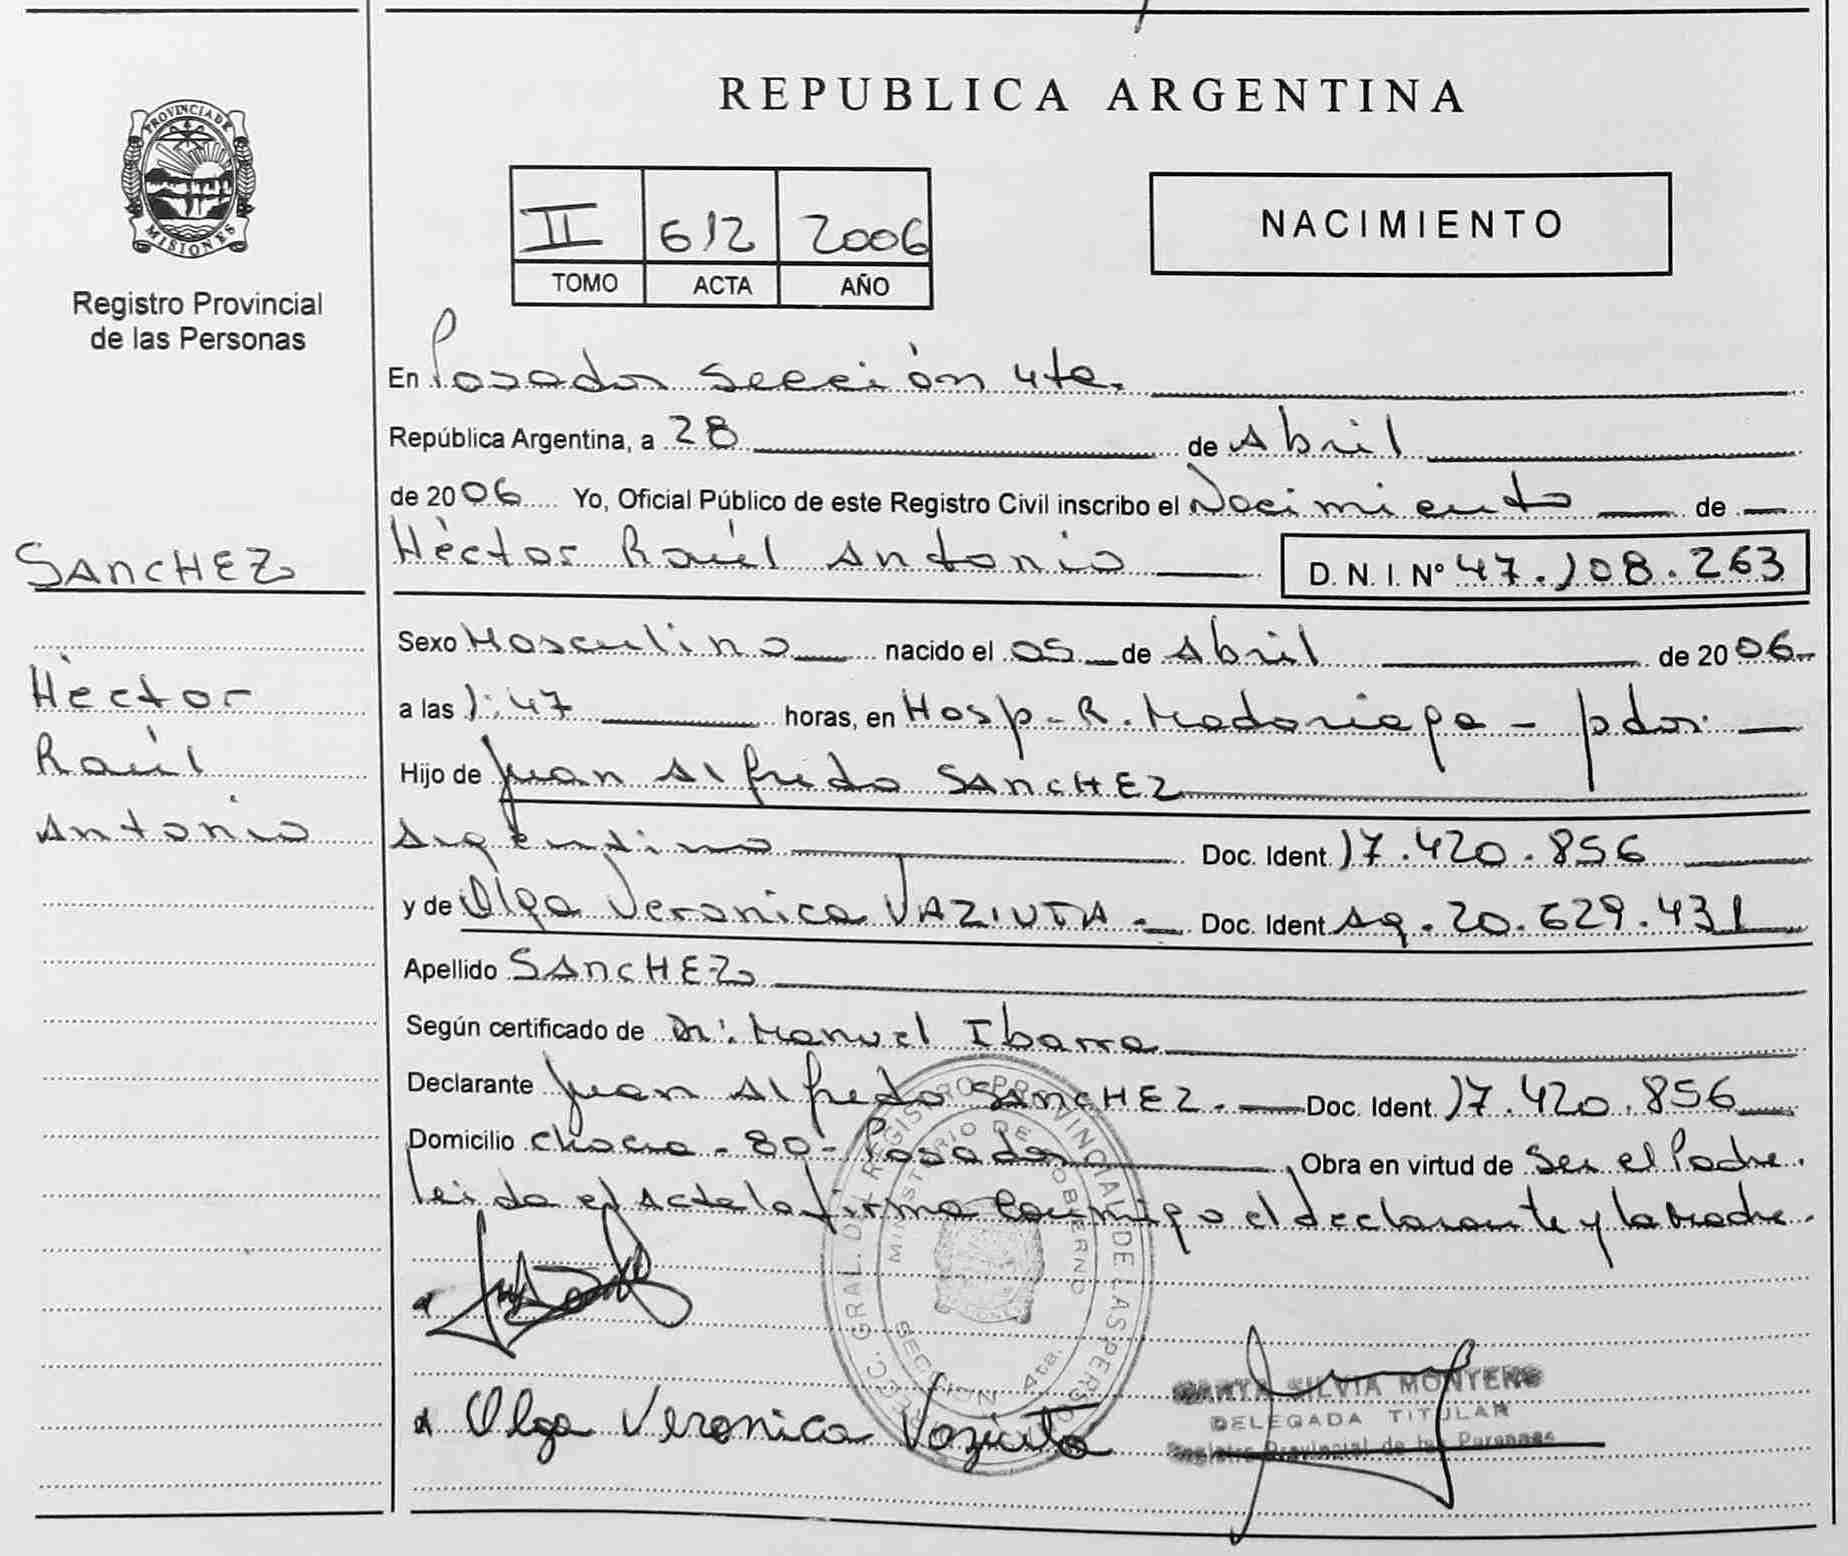 REPUBLICA ARGENTINA
PROVINCIA DE MISIONES
Registro Provincial
de las Personas
II 612 2006
TOMO ACTA AÑO
NACIMIENTO
En Posadas Sección 4ta.
República Argentina, a 28 de Abril
de 2006 Yo, Oficial Público de este Registro Civil inscribo el Nacimiento de
Héctor Raúl Antonio D. N. I. N° 47.108.263
SANCHEZ
Héctor
Raúl
Antonio
Sexo Masculino nacido el 05 de Abril de 2006
a las 1:47 horas, en Hosp. R. Madariaga - pdas.
Hijo de Juan Alfredo SANCHEZ
Argentino Doc. Ident. 17.420.856
y de Olga Veronica VAZIUTA - Doc. Ident. Ag. 20.629.431
Apellido SANCHEZ
Según certificado de Dr. Manuel Ibarra
Declarante Juan Alfredo SANCHEZ. Doc. Ident. 17.420.856
Domicilio - 80 - Posadas Obra en virtud de Ser el Padre.
leida el Acta la firma conmigo el declarante y la Madre.
DIRECC. GRAL. DEL REGISTRO PROVINCIAL DE LAS PERSONAS
MINISTERIO DE GOBIERNO
SECCION 4ta.
Olga Veronica Vaziuta
MARTA SILVIA MONTERO
DELEGADA TITULAR
Registro Provincial de las Personas